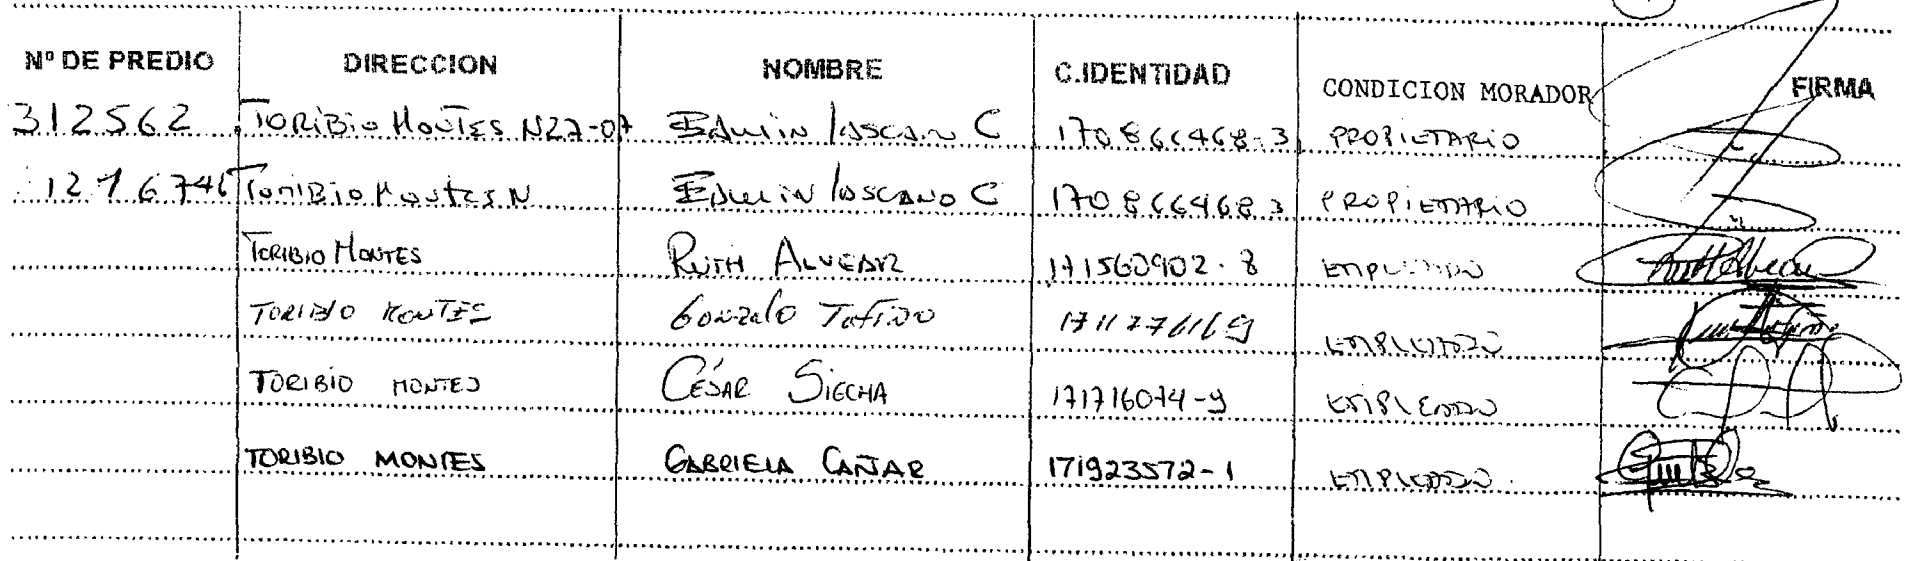 Nº DE PREDIO DIRECCION NOMBRE C.IDENTIDAD CONDICION MORADOR FIRMA
312562 TORIBIO MONTES N27-07 EDWIN LASCANO C 170866468-3 PROPIETARIO
1276746 TORIBIO MONTES N EDWIN LASCANO C 170866468 3 PROPIETARIO
TORIBIO MONTES RUTH ALVEAR 171560902-8 EMPLEADO
TORIBIO MONTES GONZALO 171127616 9 EMPLEADO
TORIBIO MONTES CÉSAR SIECHA 171716074-9 EMPLEADO
TORIBIO MONTES GABRIELA CAÑAR 171923572-1 EMPLEADO